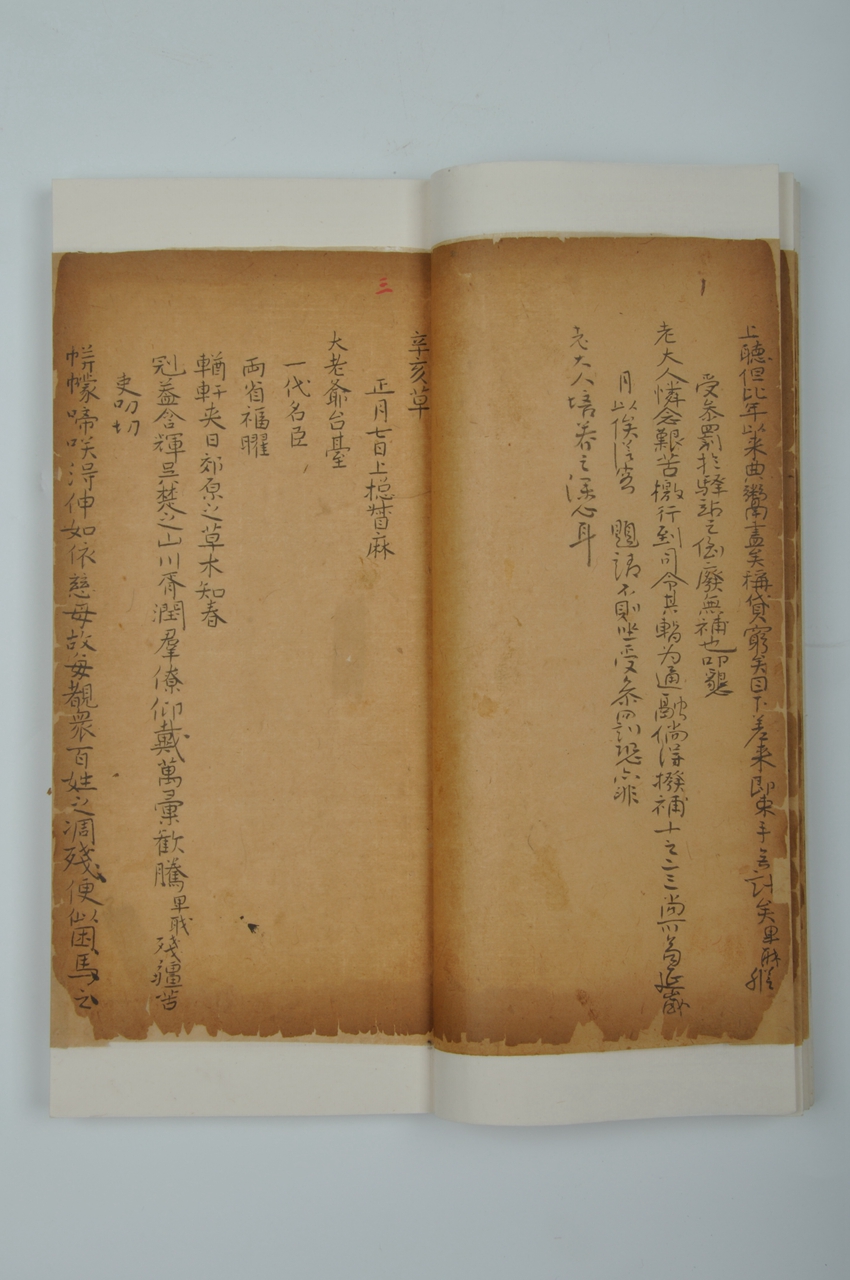 上聽但比年以来典鬻盡矣稱貸窮矣目下差来即束手無計矣卑職縱
受叅罰於驛站之倒廢無補也叩懇
老大人憐念艱苦檄行到司令其暫為通融倘得撥補十之二三尚可苟延歲
月以俟咨 題請不則坐受叅罰恐亦非
老大人培養之深心耳
三
辛亥草
正月七日上總督麻
大老爺台臺
一代名臣
兩省福曜
輶軒夹日郊原之草木知春
冠蓋含輝吴楚之山川胥潤羣僚仰戴萬彙歡騰卑職殘疆苦
吏叨切
帡幪啼咲淂伸如依慈母故每覩衆百姓之凋殘便似困馬之